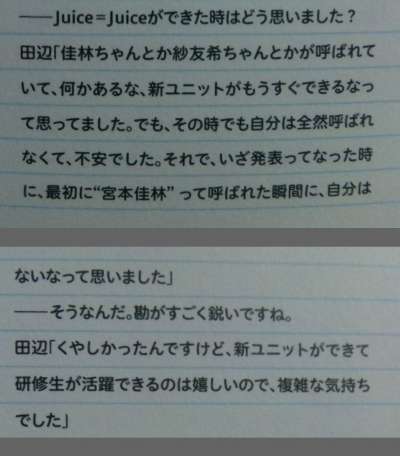 ──Juice=Juiceができた時はどう思いました？
田辺「佳林ちゃんとか紗友希ちゃんとかが呼ばれて
いて、何かあるな、新ユニットがもうすぐできるなっ
て思ってました。でも、その時でも自分は全然呼ばれ
なくて、不安でした。それで、いざ発表ってなった時
に、最初に“宮本佳林”って呼ばれた瞬間に、自分は
ないなって思いました」
──そうなんだ。勘がすごく鋭いですね。
田辺「くやしかったんですけど、新ユニットができて
研修生が活躍できるのは嬉しいので、複雑な気持ち
でした」